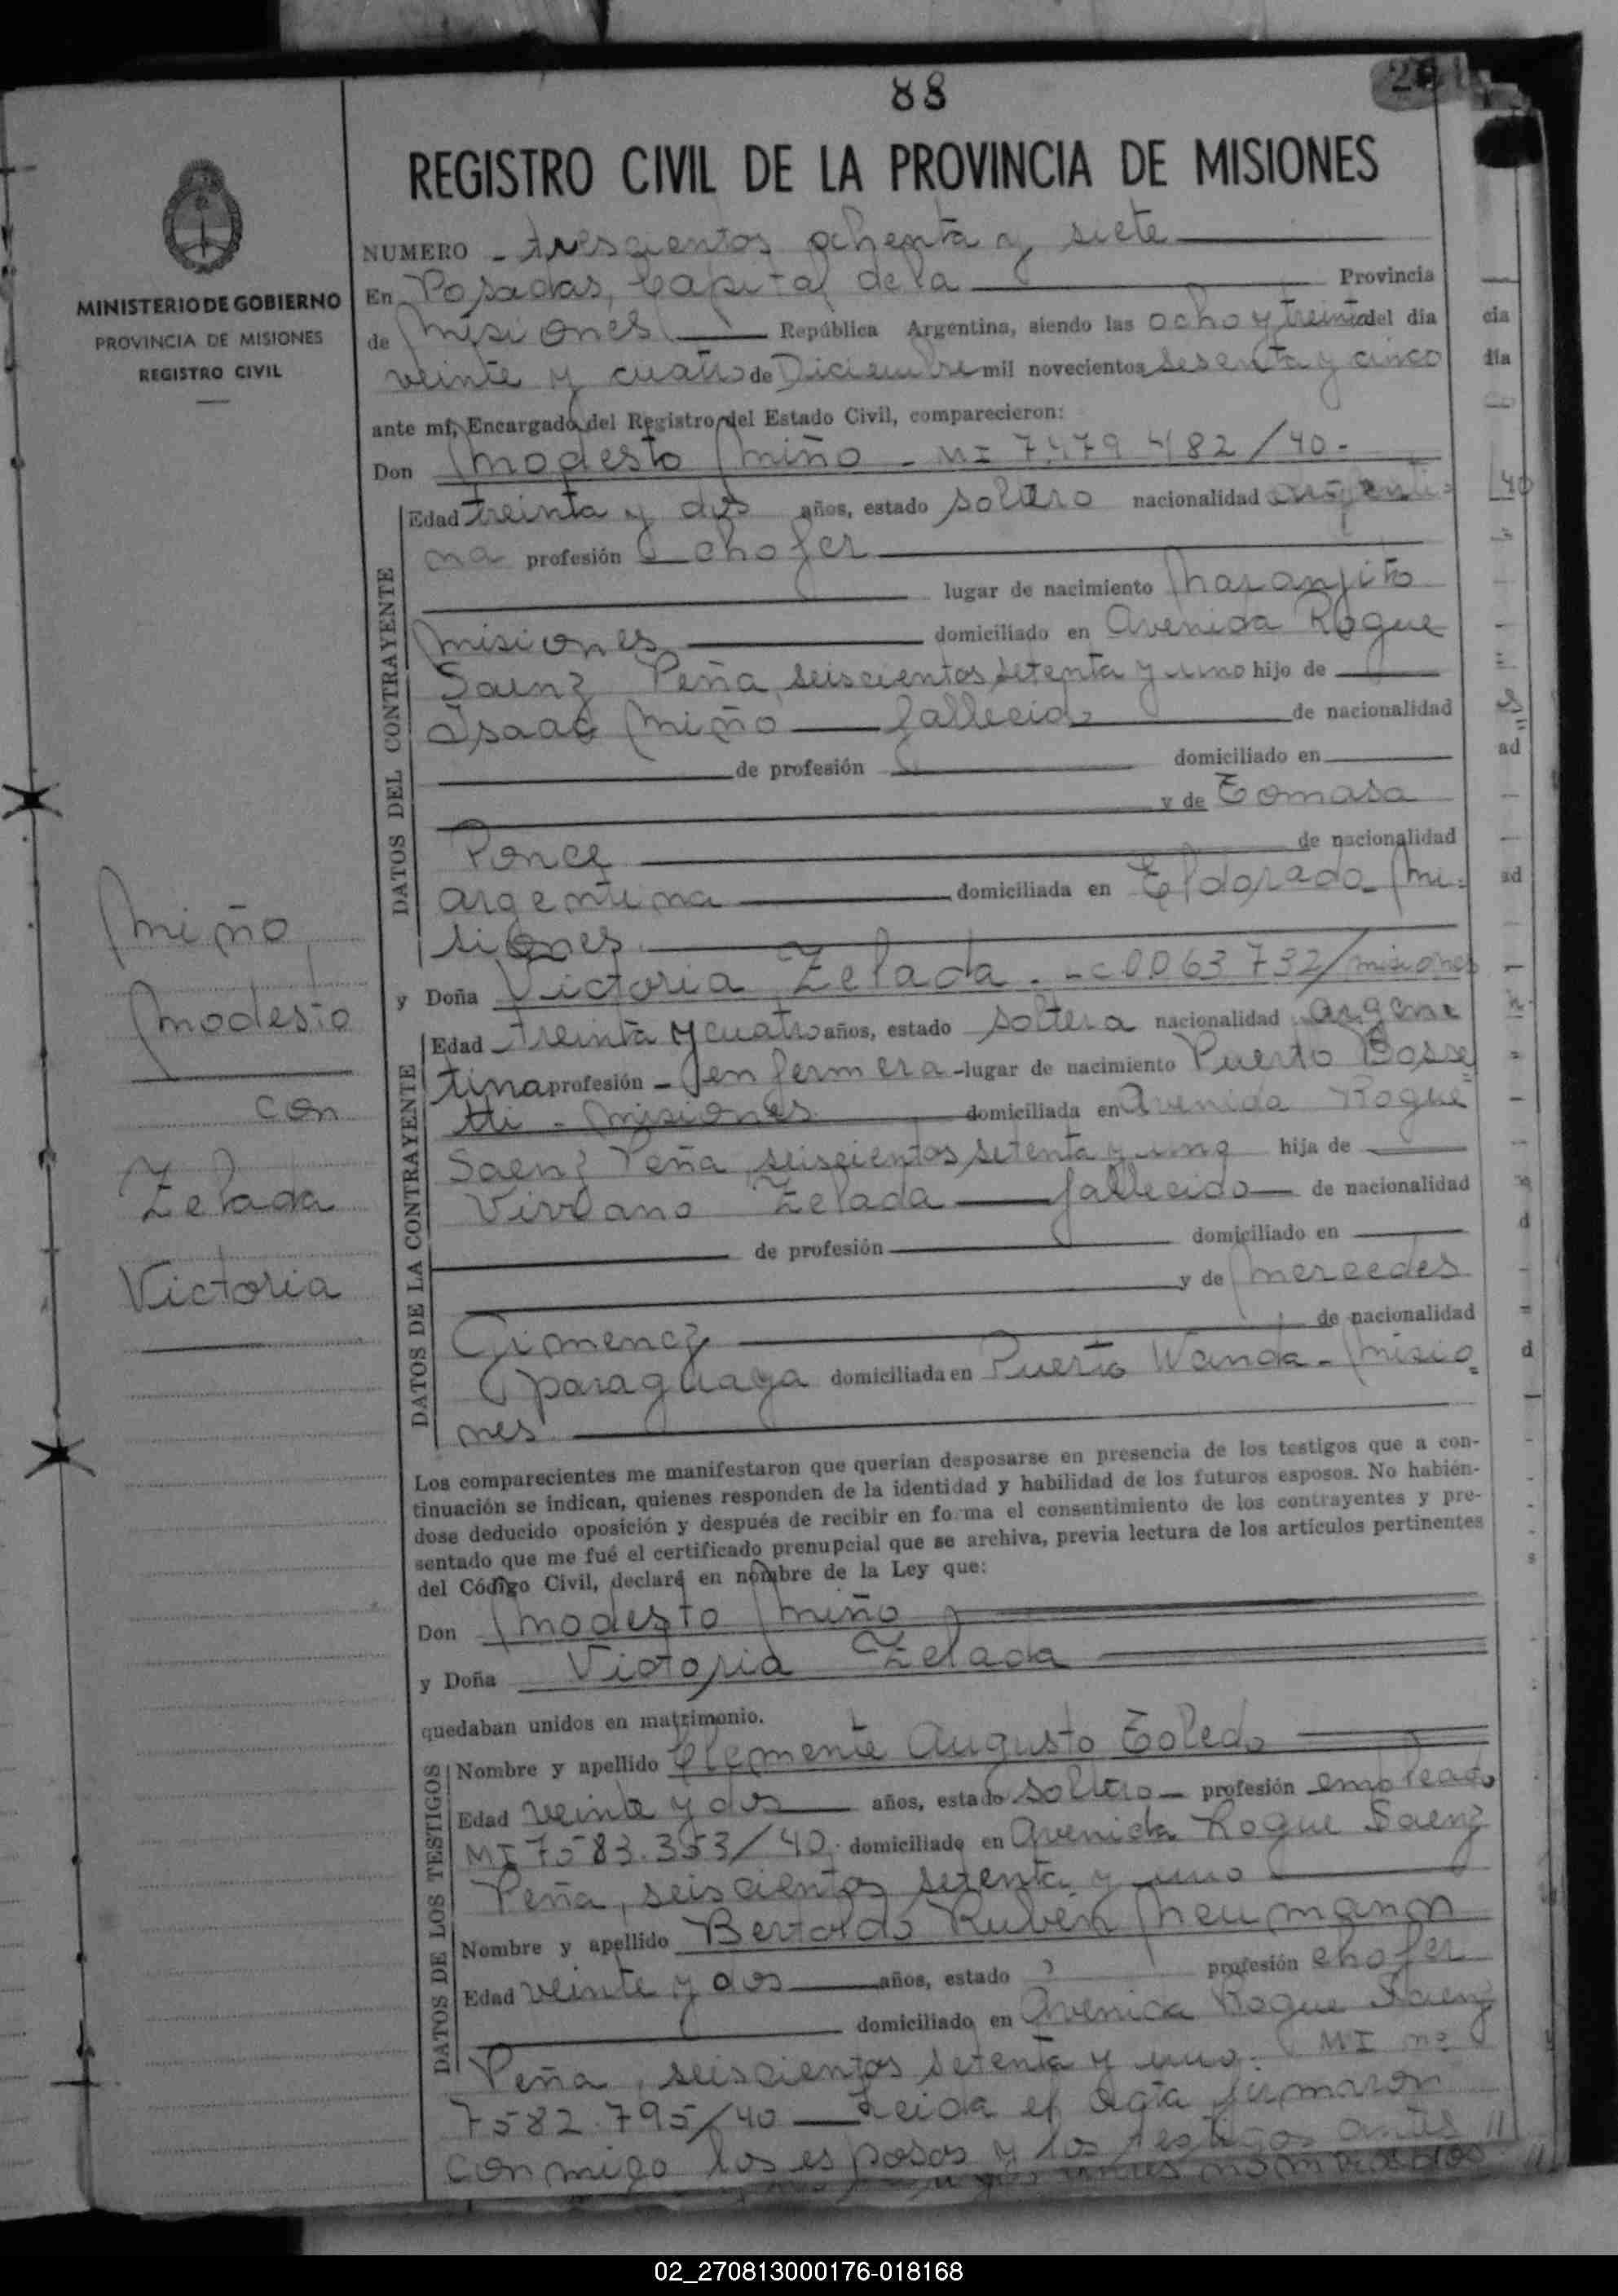 88
REGISTRO CIVIL DE LA PROVINCIA DE MISIONES
MINISTERIO DE GOBIERNO
PROVINCIA DE MISIONES
REGISTRO CIVIL
Miño
Modesto
con
Zelada
Victoria
NUMERO - trescientos ochenta y siete
En Posadas, Capital de la Provincia
de Misiones República Argentina, siendo las ocho y treinta del día
veinte y cuatro de Diciembre mil novecientos sesenta y cinco
ante mí, Encargado del Registro del Estado Civil, comparecieron:
Don Modesto Miño - MI 7.479 482/40-
DATOS DEL CONTRAYENTE
Edad treinta y dos años, estado soltero nacionalidad argenti=
na profesión chofer
lugar de nacimiento Naranjito
Misiones domiciliado en Avenida Roque
Saenz Peña, seiscientos setenta y uno hijo de
Isaac Miño fallecido de nacionalidad
de profesión domiciliado en
y de Tomasa
Ponce de nacionalidad
argentina domiciliada en Eldorado - Mi=
siones
y Doña Victoria Zelada. - C.0.063 732/misiones
DATOS DE LA CONTRAYENTE
Edad treinta y cuatro años, estado soltera nacionalidad argen=
tina profesión - enfermera - lugar de nacimiento Puerto Bosse=
tti - Misiones domiciliada en Avenida Roque
Saenz Peña, seiscientos setenta y uno hija de
Zelada fallecido de nacionalidad
de profesión domiciliado en
y de Mercedes
Gimenez de nacionalidad
paraguaya domiciliada en Puerto Wanda - Misio=
nes
Los comparecientes me manifestaron que querían desposarse en presencia de los testigos que a con-
tinuación se indican, quienes responden de la identidad y habilidad de los futuros esposos. No habién-
dose deducido oposición y después de recibir en forma el consentimiento de los contrayentes y pre-
sentado que me fué el certificado prenupcial que se archiva, previa lectura de los artículos pertinentes
del Código Civil, declaré en nombre de la Ley que:
Don Modesto Miño
y Doña Victoria Zelada
quedaban unidos en matrimonio.
DATOS DE LOS TESTIGOS
Nombre y apellido Clemente Augusto Toledo
Edad veinte y dos años, estado soltero - profesión empleado
MI 7583.353/40. domiciliado en Avenida Roque Saenz
Peña, seiscientos setenta y uno
Nombre y apellido Bertoldo Rubén Neumann
Edad veinte y dos años, estado profesión chofer
domiciliado en Avenida Roque Saenz
Peña, seiscientos setenta y uno. MI nº
7582.795/40 Leida el Acta firmaron
conmigo los esposos y los testigos antes //
nombrados //
02_270813000176-018168